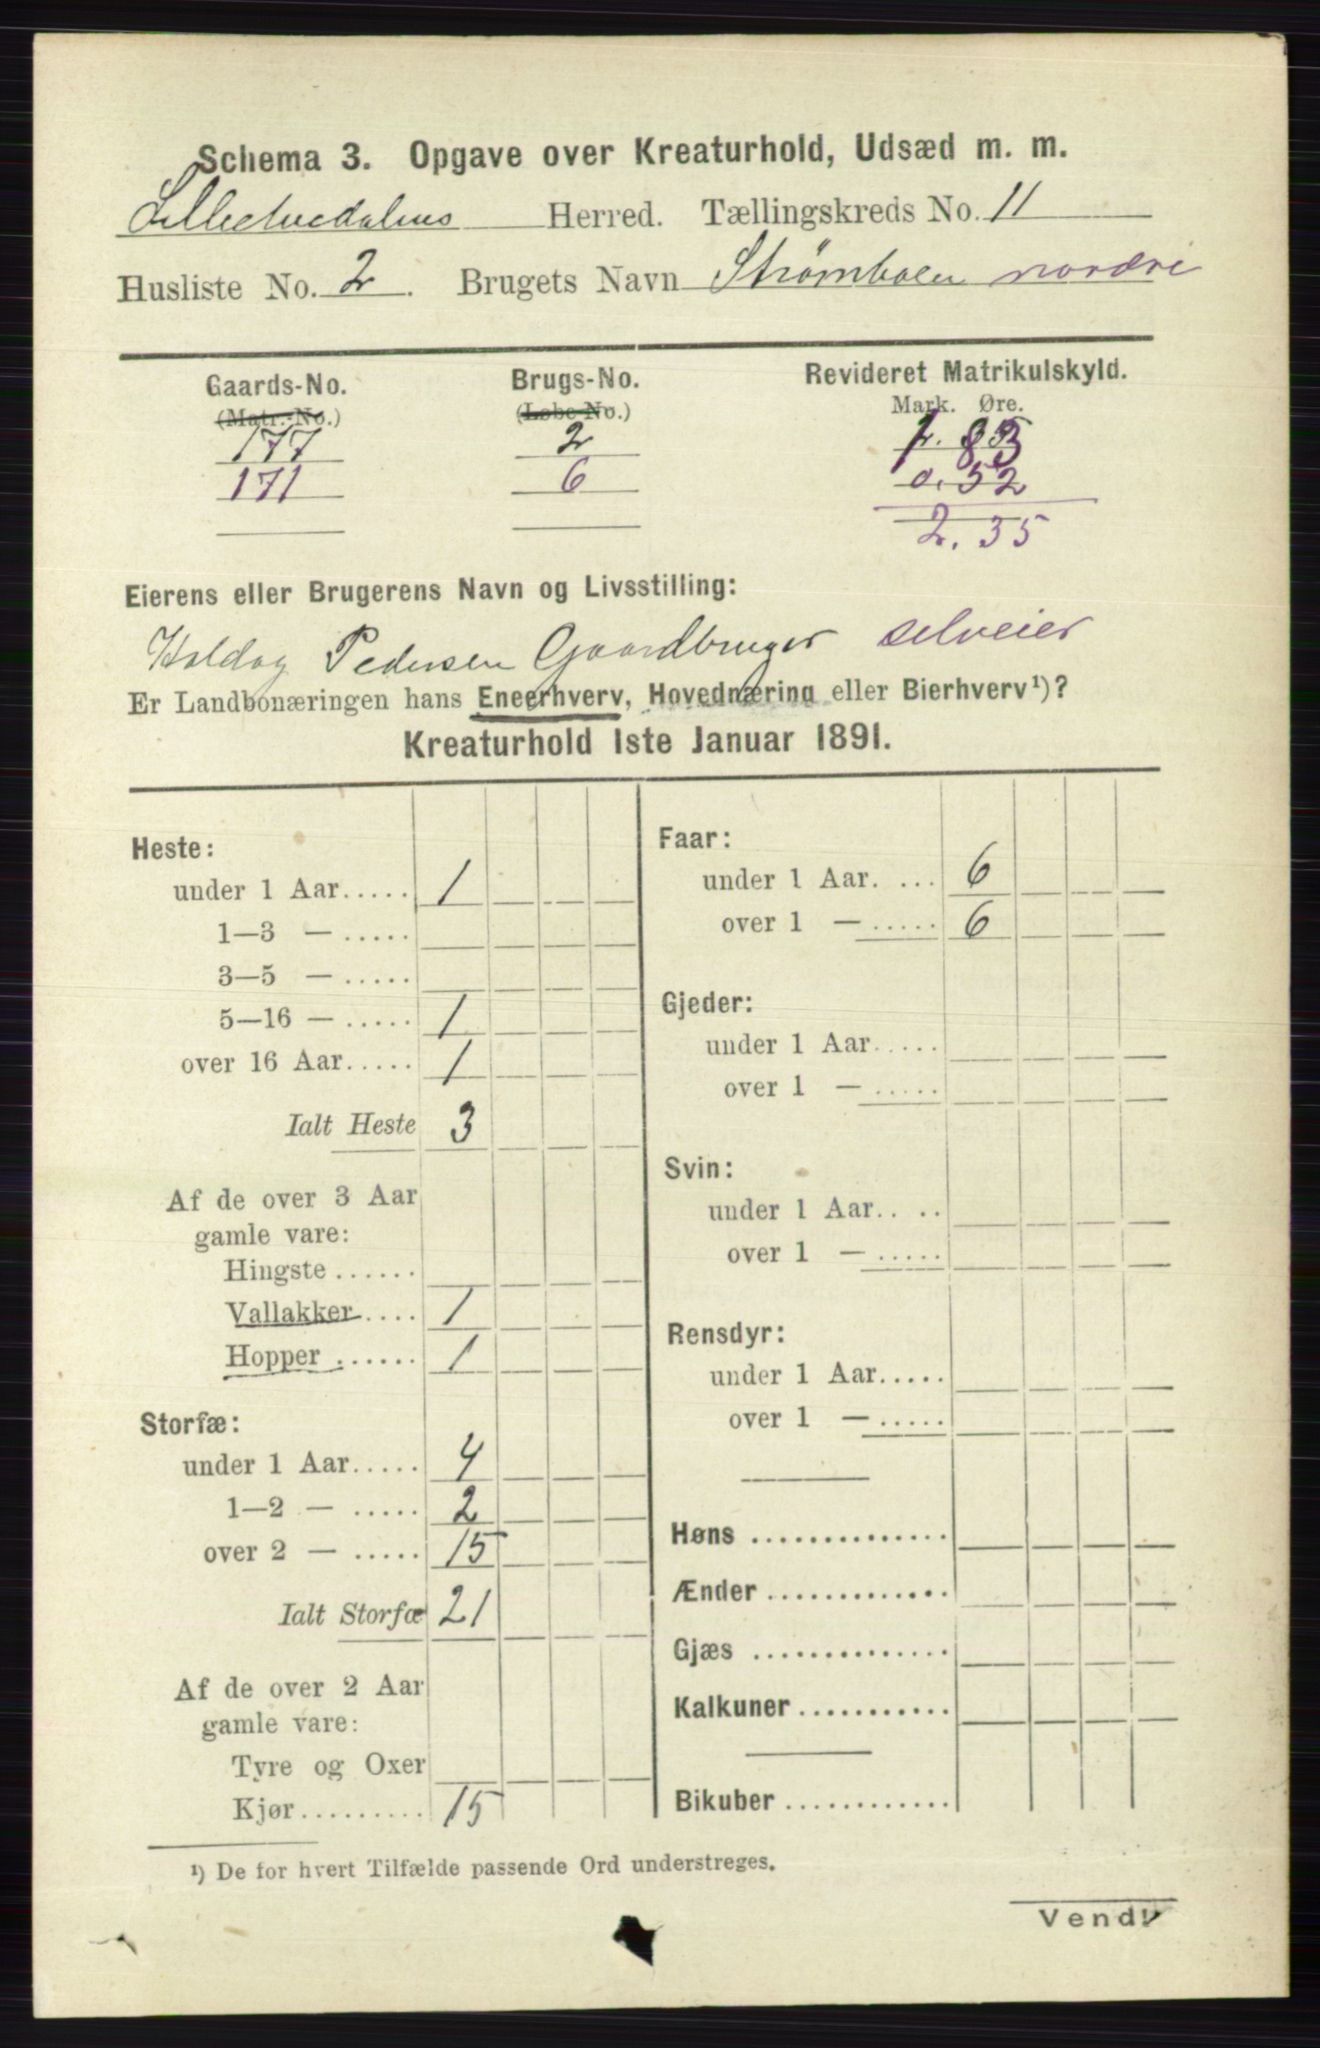 Schema 3. Opgave over Kreaturhold, Udsæd m. m.
Lilleelvedalens Herred. Tællingskreds No. 11
Husliste No. 2. Brugets Navn Strømboen nordre
Gaards-No. Brugs-No. Revideret Matrikulskyld.
(Matr.-No.) (Løbe-No.) Mark. Øre.
177 2 1. 83
171 6 0. 52
2. 35
Eierens eller Brugerens Navn og Livsstilling:
Haldog Pedersen Gaardbruger selveier
Er Landbonæringen hans Eneerhverv, Hovednæring eller Bierhverv¹)?
Kreaturhold 1ste Januar 1891.
Heste:
under 1 Aar..... 1
1—3 — .....
3—5 — .....
5—16 — ..... 1
over 16 Aar..... 1
Ialt Heste 3
Af de over 3 Aar
gamle vare:
Hingste......
Vallakker.... 1
Hopper ...... 1
Storfæ:
under 1 Aar..... 4
1—2 — ..... 2
over 2 — ..... 15
Ialt Storfæ 21
Af de over 2 Aar
gamle vare:
Tyre og Oxer
Kjør......... 15
Faar:
under 1 Aar. ... 6
over 1 — ..... 6
Gjeder:
under 1 Aar.....
over 1 — .....
Svin:
under 1 Aar.. ..
over 1 — .....
Rensdyr:
under 1 Aar.....
over 1 — .....
Høns ..............
Ænder .............
Gjæs ..............
Kalkuner...........
Bikuber ............
¹) De for hvert Tilfælde passende Ord understreges.
Vend!